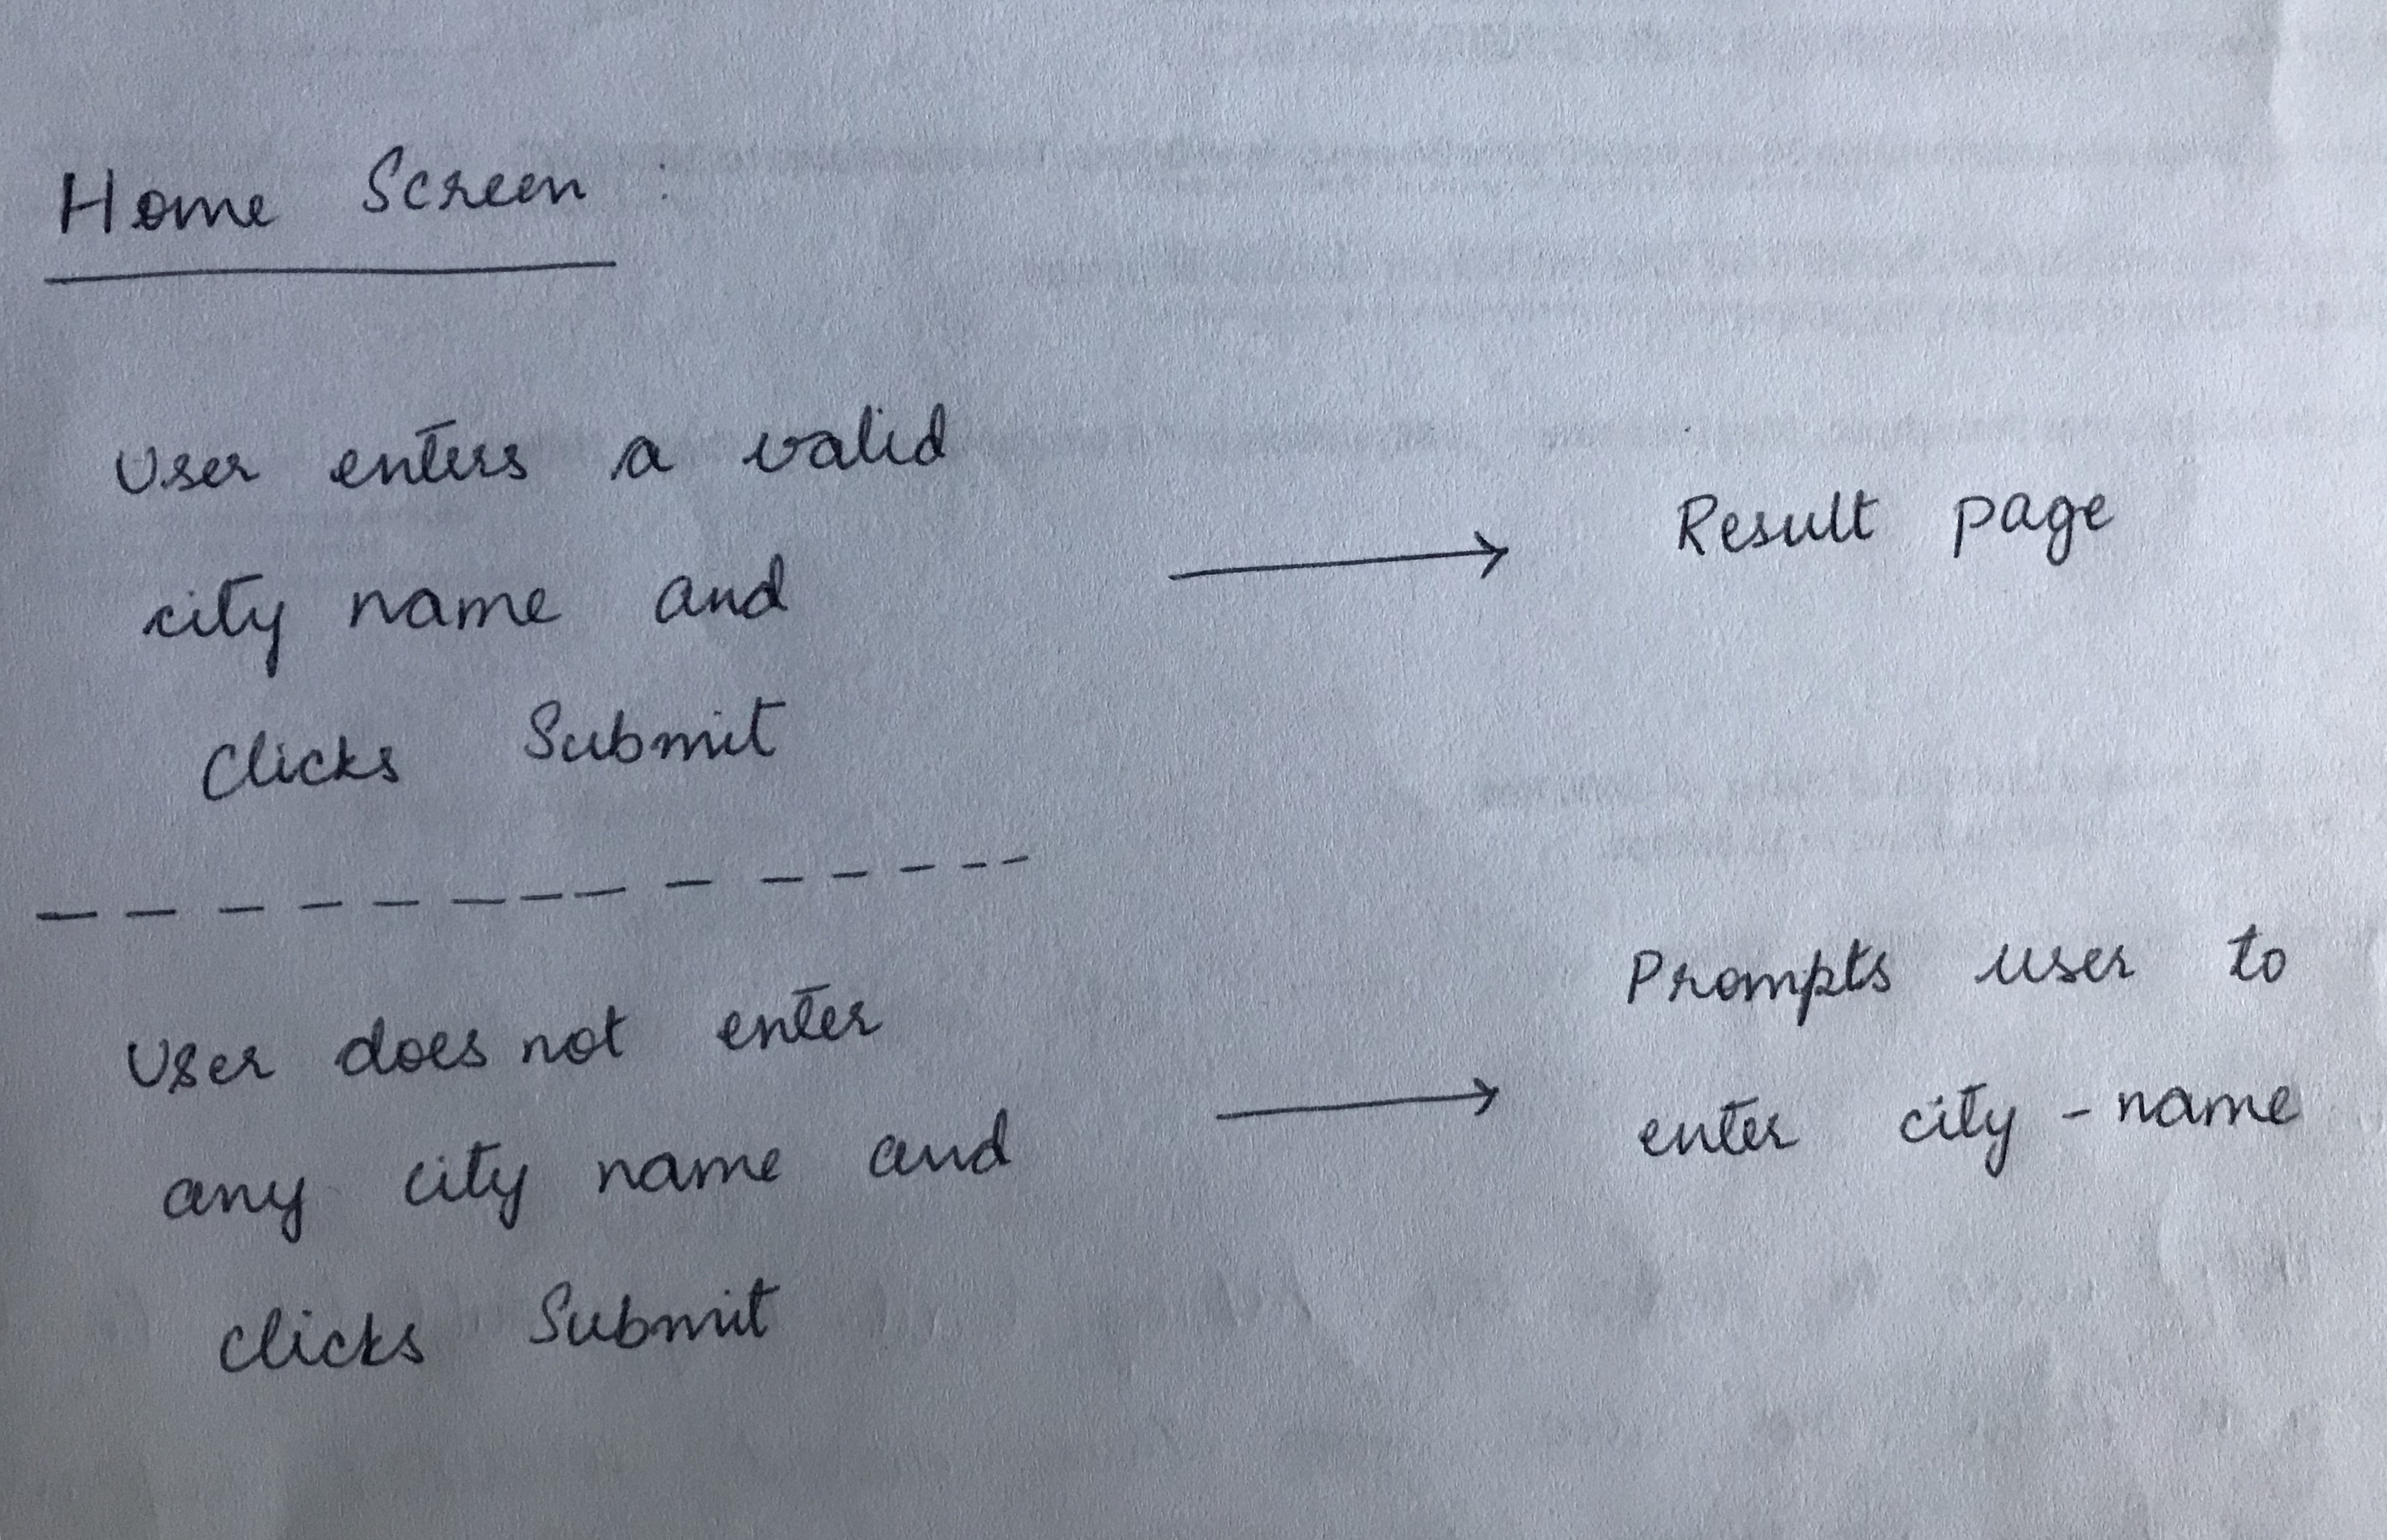 Home Screen :
User enters a valid
city name and
Clicks Submit
→ Result page
User does not enter
any city name and
clicks Submit
→ Prompts user to
enter city - name